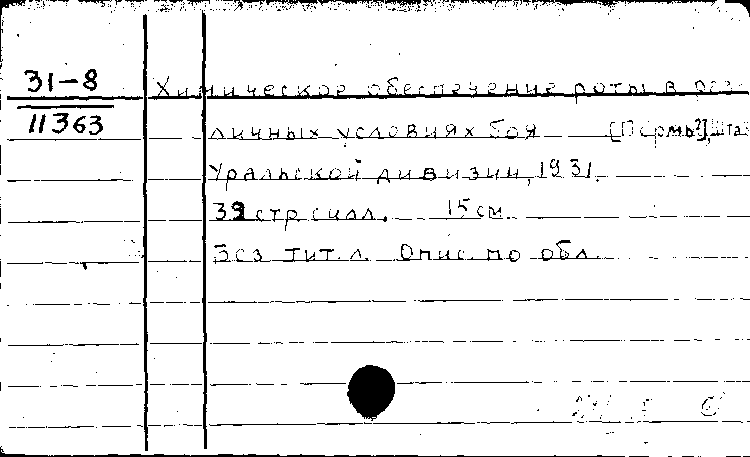 31-8
11363
Химическое обеспечение роты в раз-
личных условиях боя [Пермь?], Шта
Уральской дивизии, 1931.
32 стр. с илл. 15 см.
Без тит. л. Опис. по обл.